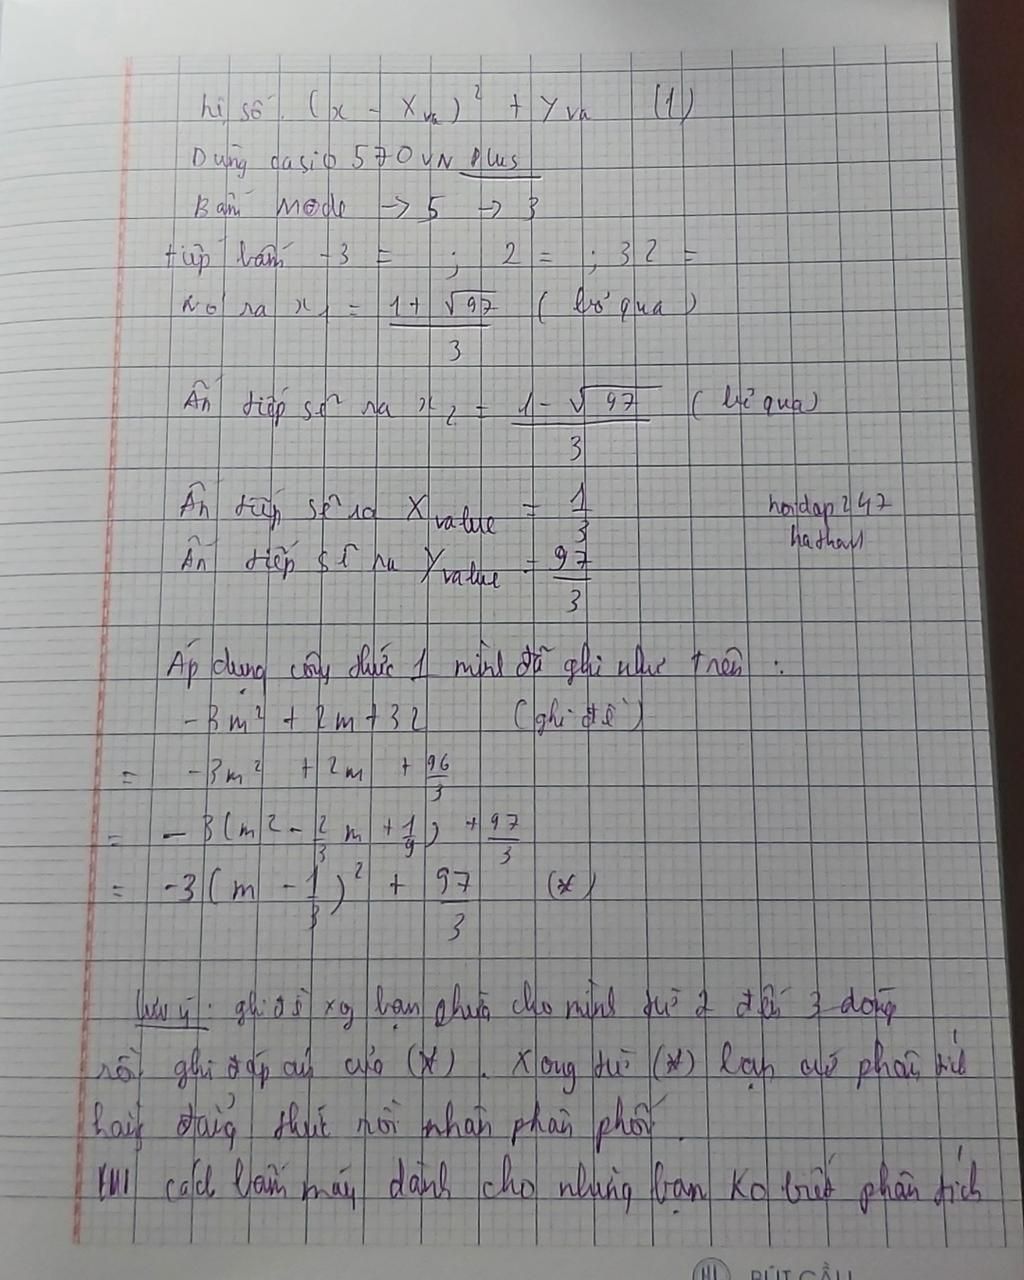 hệ số. (x - X_va)² + Y_va (1)
Dùng casio 570 VN Plus
Bấm Mode → 5 → 3
tiếp bấm -3 = ; 2 = ; 32 =
Nó ra x₁ = (1 + √97)/3 (bỏ qua)
Ấn tiếp sẽ ra x₂ = (1 - √97)/3 (bỏ qua)
Ấn tiếp sẽ ra X_value = 1/3
hoidap247
Ấn tiếp sẽ ra Y_value = 97/3
Áp dụng công thức 1 mình đã ghi như trên :
-3m² + 2m + 32 (ghi đề)
= -3m² + 2m + 96/3
= -3(m² - 2/3 m + 1/9) + 97/3
= -3(m - 1/3)² + 97/3 (*)
Lưu ý: ghi đề xg bạn chừa cho mình từ 2 đến 3 dòng
rồi ghi đáp án vào (*). Xong từ (*) bạn cứ phân tích
hằng đẳng thức rồi nhân phân phối.
cách bấm máy dành cho những bạn ko biết phân tích
BÚT CẦU